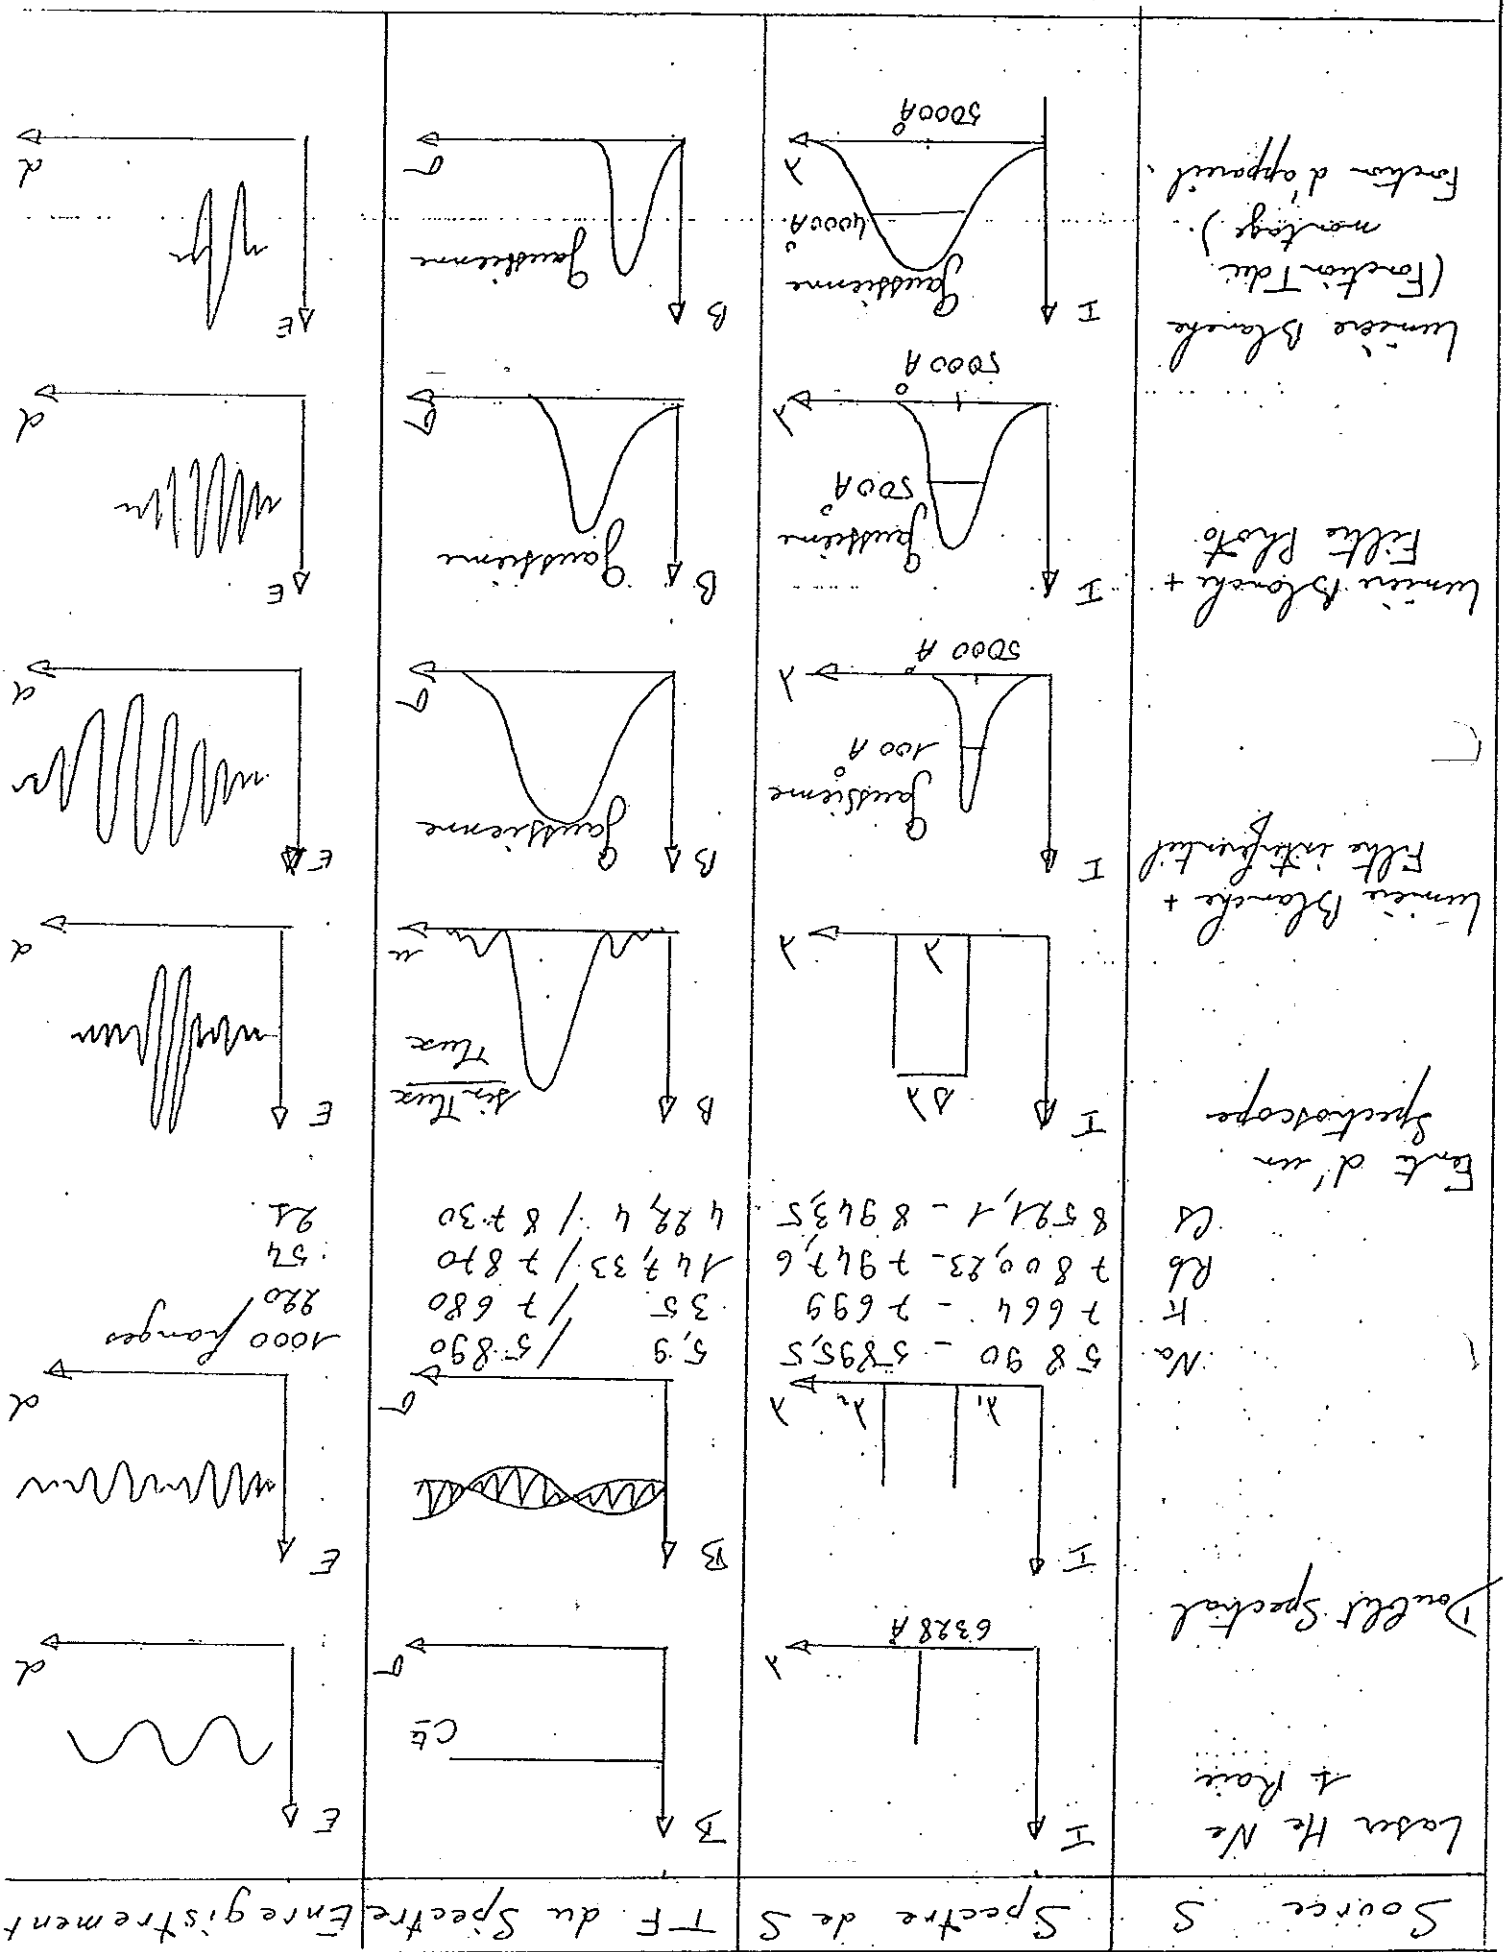 Source S
Spectre de S
TF du Spectre
Enregistrement
Laser He Ne
1 Raie
I
6328 Å
λ
B
Cte
σ
E
d
Doublet Spectral
I
λ1
λ2
λ
B
σ
E
d
Na 5890 - 5895,5 5,9 / 5890 1000 franges
K 7664 - 7699 35 / 7680 220
Rb 7800,23 - 7947,6 147,33 / 7870 54
Cs 8521,1 - 8943,5 422,4 / 8730 21
Fente d'un
Spectroscope
I
Δλ
λ
λ
B
sin πux
πux
u
E
d
Lumière Blanche +
Filtre interférentiel
I
Gaussienne
100 Å
5000 Å
λ
B
Gaussienne
σ
E
d
Lumière Blanche +
Filtre Photo
I
Gaussienne
500 Å
5000 Å
λ
B
Gaussienne
σ
E
d
Lumière Blanche
(Fonction T du
montage)
Fonction d'appareil.
I
Gaussienne
4000 Å
5000 Å
λ
B
Gaussienne
σ
E
d